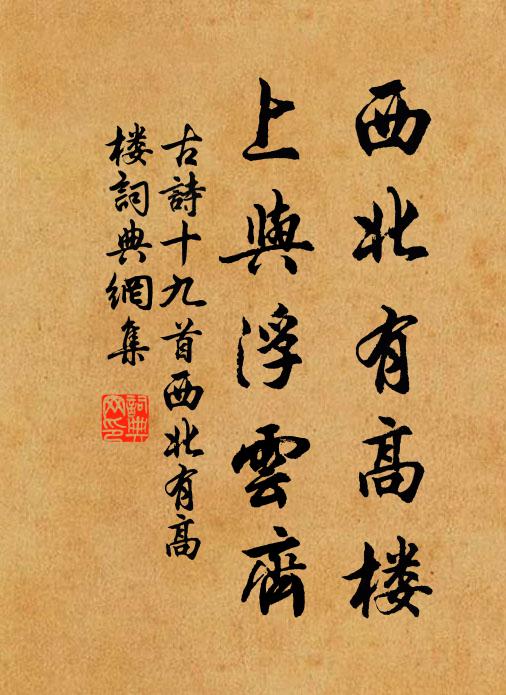 西北有高楼
上與浮雲齊
古詩十九首西北有高
楼詞典網集
詞典
网印